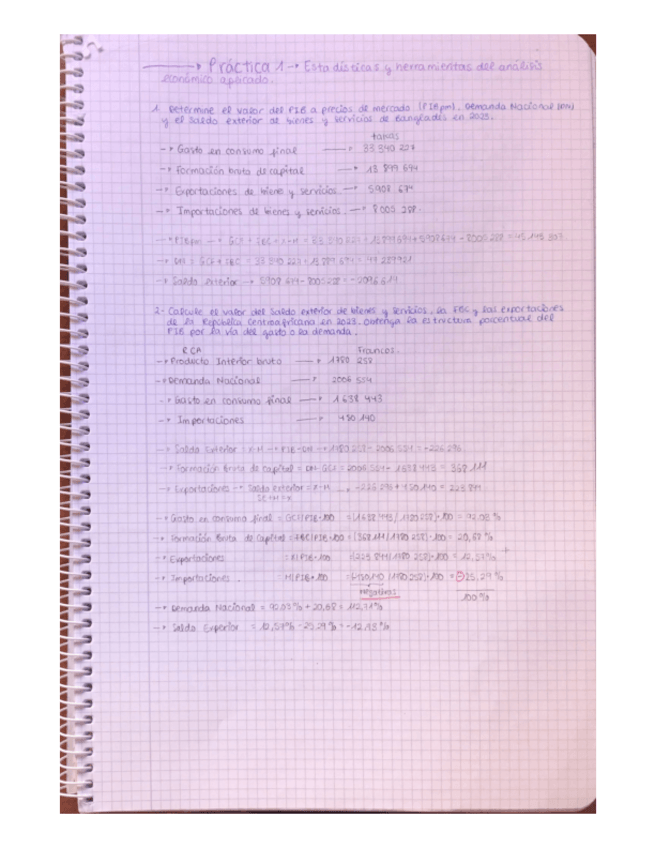 Práctica 1 → Estadísticas y herramientas del análisis
económico aplicado.
1. Determine el valor del PIB a precios de mercado (PIBpm), Demanda Nacional (DN)
y el saldo exterior de bienes y servicios de Bangladés en 2023.
takas
→ Gasto en consumo final → 33 340 227
→ Formación bruta de capital → 13 899 694
→ Exportaciones de biene y servicios → 5908 674
→ Importaciones de bienes y servicios. → 8005 288.
→ PIBpm → GCF + FBC + X-M =
→ DN = GCF + FBC =
→ Saldo exterior →
2- Calcule el valor del saldo exterior de bienes y servicios, la FBC y las exportaciones
de la República Centroafricana en 2023. Obtenga la estructura porcentual del
PIB por la vía del gasto o la demanda.
RCA Francos.
→ Producto Interior bruto → 1780 258
→ Demanda Nacional → 2006 554
→ Gasto en consumo final → 1 638 443
→ Importaciones → 450 140
→ Saldo Exterior : X-M → PIB-DN → 1780 258 - 2006 554 = -226 296
→ Formación Bruta de Capital = DN-GCF = 2006 554 - 1638 443 = 368 111
→ Exportaciones → Saldo exterior = X-M → -226 296 + 450 140 = 223 844
SE+M = X
→ Gasto en consumo final = GCF/PIB·100 = (1638 443/1780 258)·100 = 92,03 %
→ Formación Bruta de Capital = FBC/PIB·100 = (368 111/1780 258)·100 = 20,68 %
→ Exportaciones = X/PIB·100 (223 844/1780 258)·100 = 12,57 %
→ Importaciones. : M/PIB·100 = (450140/1780 258)·100 = -25,29 %
negativas 100 %
→ Demanda Nacional = 92,03 % + 20,68 = 112,71 %
→ Saldo Experior = 12,57 % - 25,29 % = -12,73 %